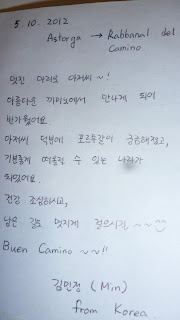 5.10.2012
Astorga → Rabbanal del
Camino
멋진 마리오 아저씨~!
아름다운 까미노에서 만나게 되어
반가웠어요.
아저씨 덕분에 포르투갈이 궁금해졌고,
기분좋게 떠올릴 수 있는 나라가
되었어요.
건강 조심하시고,
남은 길도 멋지게 걸으시길,~~
Buen Camino ~~!!
김민정 (Min)
from Korea.